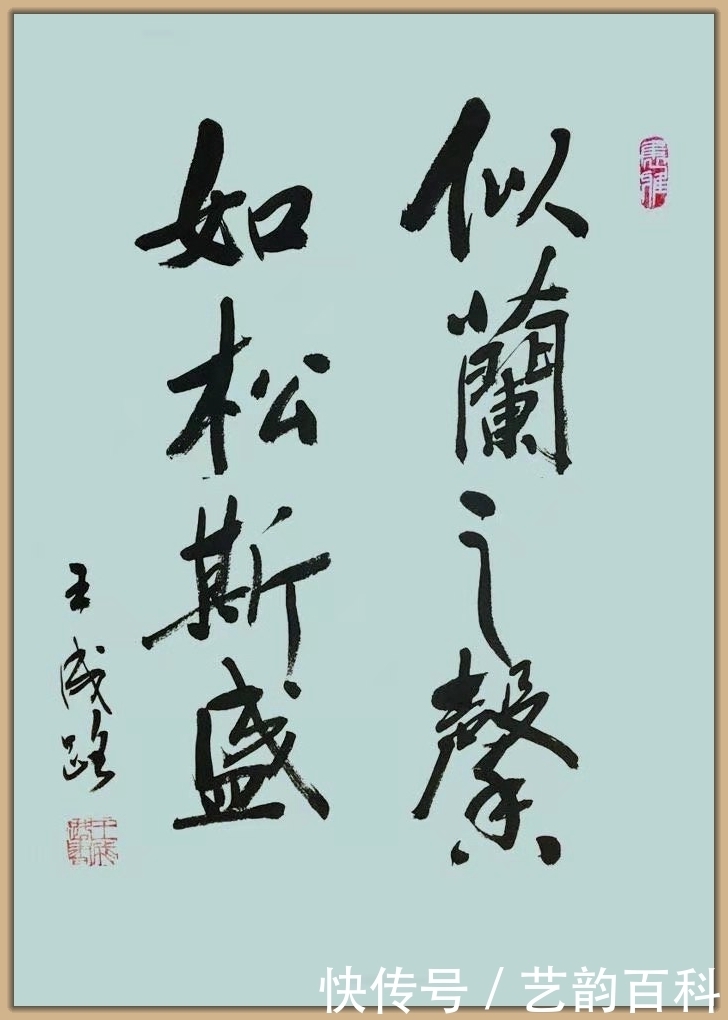 似蘭之馨
如松斯盛
王成路
快传号 / 艺韵百科